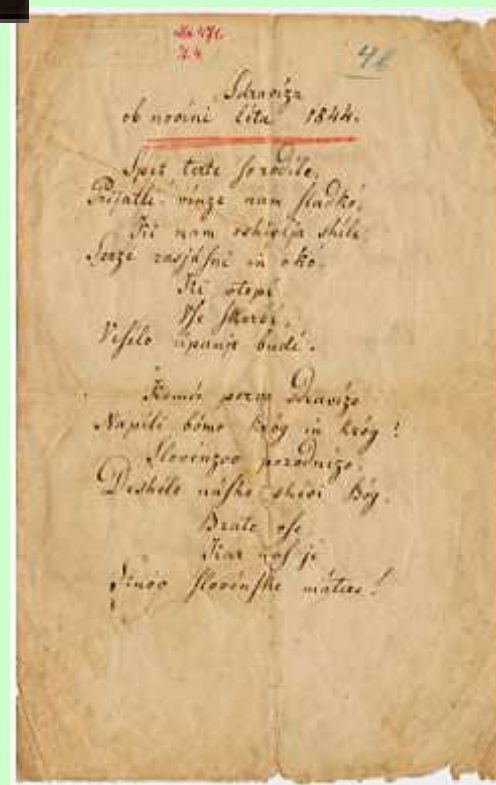 Ms 471.
N. 4.
4b
Sdraviza
ob novini léta 1844.
Spet terte so rodile,
Prijatli! vinze nam sladkó,
Ki nam oshivlja shile
Serze rasjásni in oko.
Ki vtopi
Vse skerbi,
Veselo úpanje budi.
Komú pervo Sdravizo
Napíli bómo króg in króg!
Slovénzov porodnizo,
Deshélo násho shivi Bóg.
Brate vse
Kar nas je
Sinóv slovénske mátere!